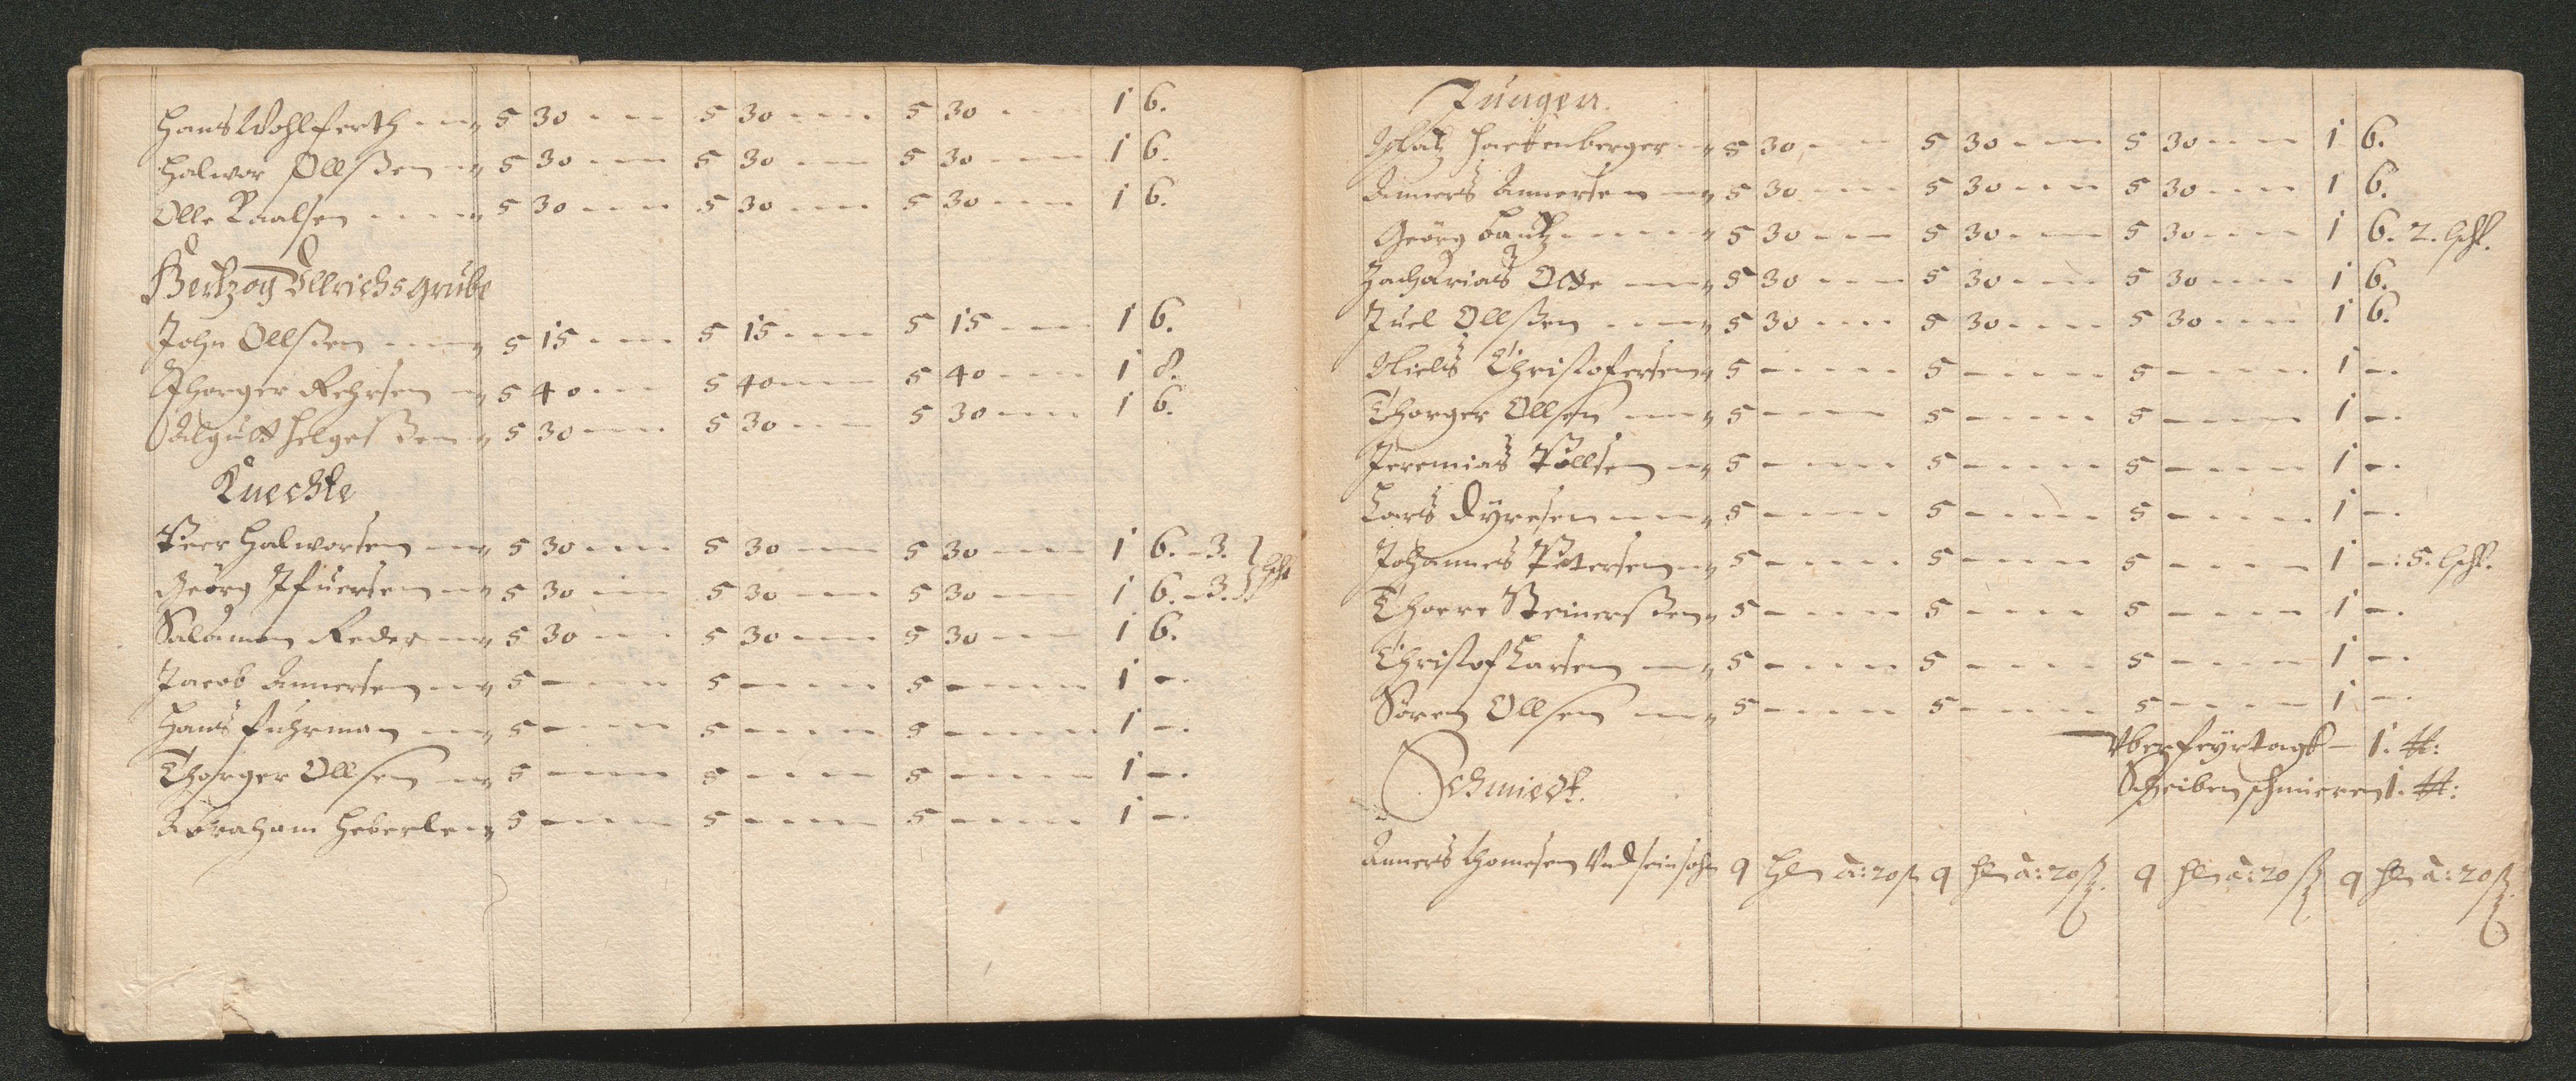 Hans Wohlferth - - - 5 30 - - - 5 30 - - - 5 30 - - - 1 6.
Halwor Ollßen - 5 30 - - - 5 30 - - - 5 30 - - - 1 6.
Olle Knalsen - - - - 5 30 - - - 5 30 - - - 5 30 - - - 1 6.
Hertzog Ullrichs grube
John Ollßen - - - - 5 15 - - - 5 15 - - - 5 15 - - - 1 6.
Thorger Rehrsen - 5 40 - - - 5 40 - - - 5 40 - - - 1 8.
Helgeßen - 5 30 - - - 5 30 - - - 5 30 - - - 1 6.
Knechte
Peer Halworsen - - 5 30 - - - 5 30 - - - 5 30 - - - 1 6. - 3.
Georg - 5 30 - - - 5 30 - - - 5 30 - - - 1 6. - 3. schl
Salamon Reder - - 5 30 - - - 5 30 - - - 5 30 - - - 1 6.
Jacob Annersen - - 5 - - - - 5 - - - - 5 - - - - 1 -.
Hans Fuhrman - - 5 - - - - 5 - - - - 5 - - - - 1 -.
Thorger Ollsen - - 5 - - - - 5 - - - - 5 - - - - 1 -.
Abraham Heberlen 5 - - - - 5 - - - - 5 - - - - 1 -.
Jungen.
Hartenberger - 5 30 - - - 5 30 - - - 5 30 - - - 1 6.
Anners Annersen - - 5 30 - - - 5 30 - - - 5 30 - - - 1 6.
Georg Bautz - - - - 5 30 - - - 5 30 - - - 5 30 - - - 1 6. 2. schl.
Zacharias Otte - - - 5 30 - - - 5 30 - - - 5 30 - - - 1 6.
Juel Ollßen - - - - 5 30 - - - 5 30 - - - 5 30 - - - 1 6.
Niels Christofersen 5 - - - - 5 - - - - 5 - - - - 1 -.
Thorger Ollsen - - 5 - - - - 5 - - - - 5 - - - - 1 -.
Jeremias Pollsen - 5 - - - - 5 - - - - 5 - - - - 1 -.
Lars Dyresen - - - 5 - - - - 5 - - - - 5 - - - - 1 -.
Johannes Petersen - 5 - - - - 5 - - - - 5 - - - - 1 -: 5. schl.
Thore Steinerßen 5 - - - - 5 - - - - 5 - - - - 1 -.
Christof Larsen - - 5 - - - - 5 - - - - 5 - - - - 1 -.
Sören Ollsen - - 5 - - - - 5 - - - - 5 - - - - 1 -.
Vber feyrtags - 1. tt:
Scheiben schmieren 1. tt:
Schmiedt.
Anners Thomesen Vnd sein sohn 9 à: 20 ß 9 à: 20 ß. 9 à: 20 ß 9 à: 20 ß.